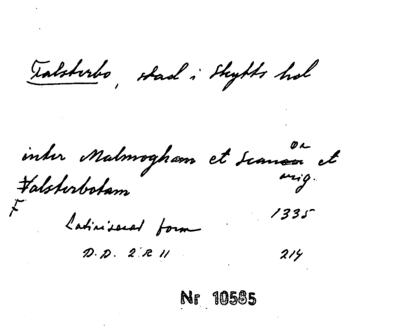 Falsterbo, stad i Skytts hd
inter Malmogham et Scanör et
Falsterbotam orig.
F
Latiniserad form 1335
D.D. 2 R 11 214
Nr 10585